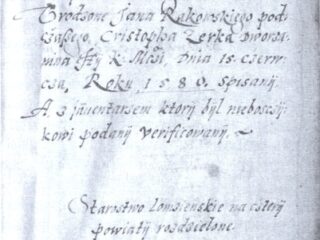 Urodzone, Jana Rakowskiego pod
czaszego, Cristopha Zerka Dworza
nina Kr: K: Mosi, Dnia 15 Czerw
csa, Roku, 1580. Spisanij.
A, z jnventarsem ktorij bijl nieboscij
kowi podanij verificowanij.
Starostwo Lomzienskie na czterij
powiatij rozdzielone.